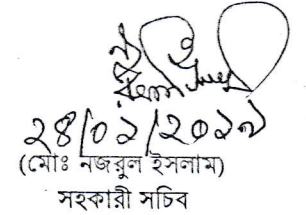 ২৪/০১/২০১৭
(মোঃ নজরুল ইসলাম)
সহকারী সচিব